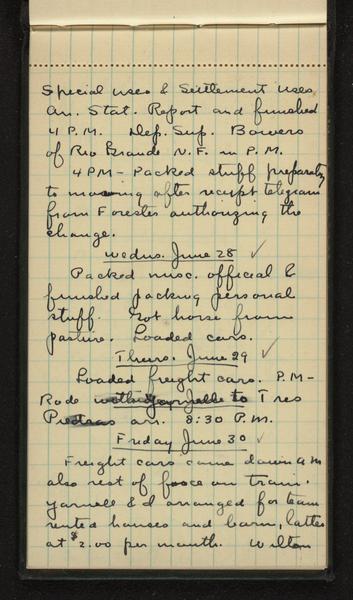 Special uses & Settlement uses
An. Stat. Report and finished
4 P.M. Dep. Sup. Bowers
of Rio Grande N.F. in P.M.
4 PM - Packed stuff preparatory
to moving after receipt telegram
from Forester authorizing the
change.
Wednes. June 28
Packed misc. official &
finished packing personal
stuff. Got horse from
pasture. Loaded cars.
Thurs. June 29
Loaded freight cars. P.M -
Rode with Yarnelle to Tres
Piedras arr. 8:30 P.M.
Friday June 30
Freight cars came down AM
also rest of force on train.
Yarnell & I arranged for team
rented houses and barn, latter
at $2.00 per month. Wilton